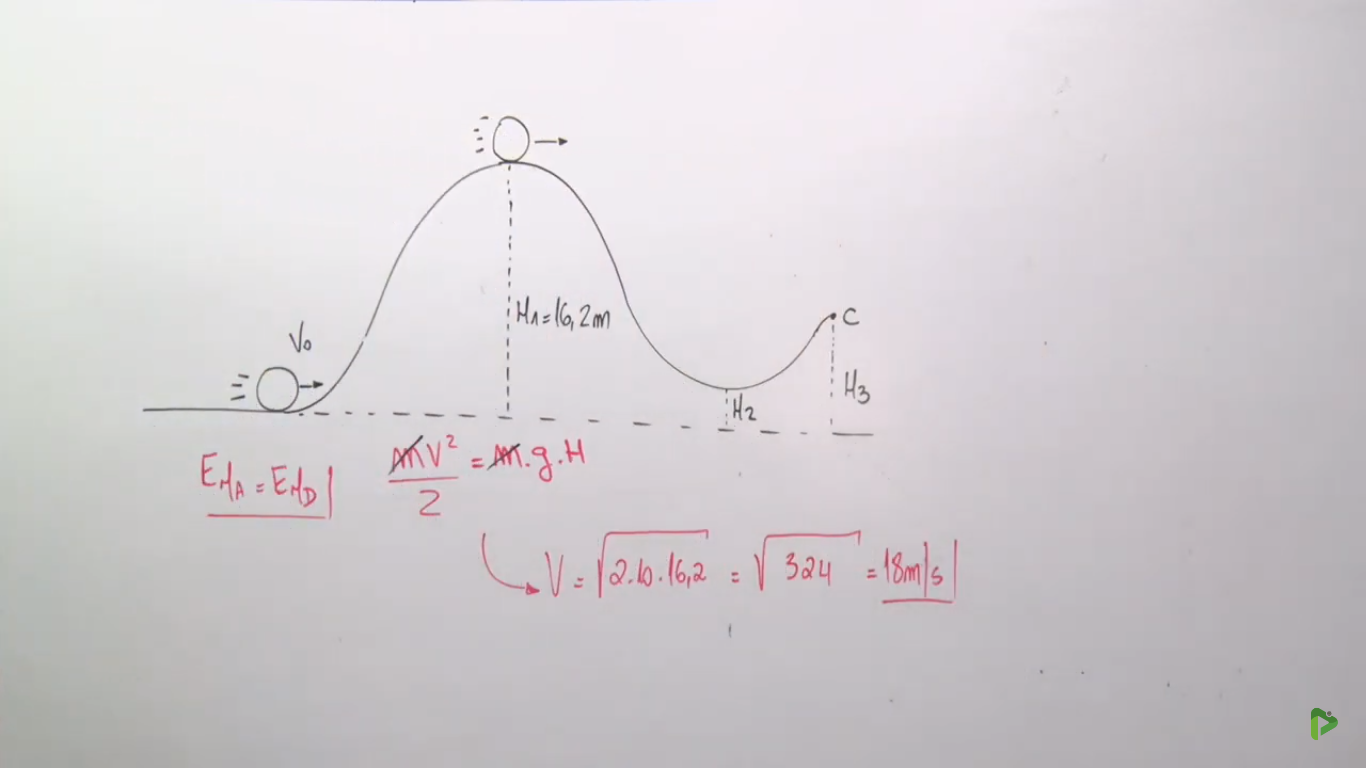 V₀
H₁=16,2m
C
H₃
H₂
E_{M_A} = E_{M_D}
mV²/2 = m.g.H
V = √2.10.16,2 = √324 = 18m/s